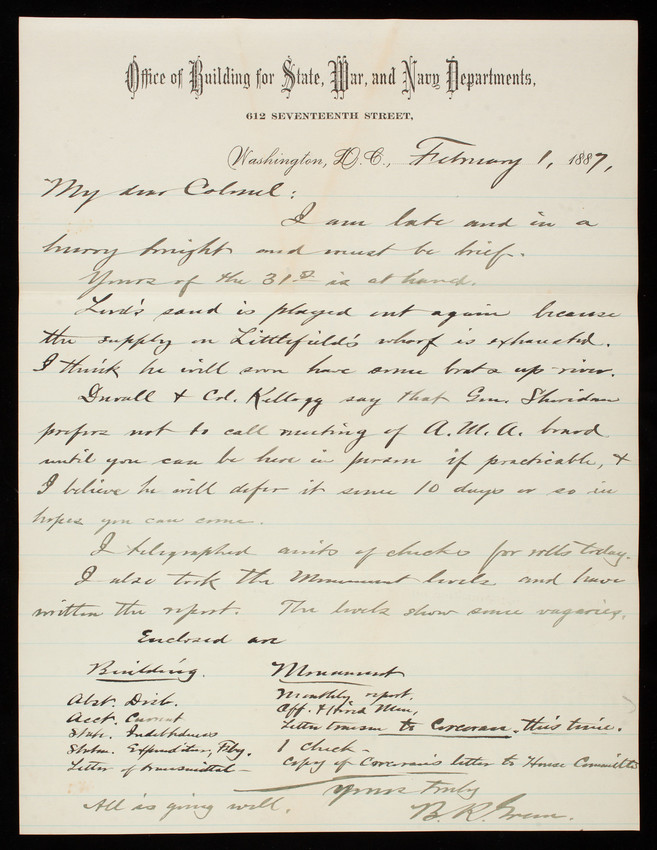 Office of Building for State, War, and Navy Departments,
612 SEVENTEENTH STREET,
Washington, D.C., February 1, 1887,
My dear Colonel:
I am late and in a
hurry tonight and must be brief.
Yours of the 31st is at hand.
Lord's sand is played out again because
the supply on Littlefield's wharf is exhausted.
I think he will soon have some boats up river.
Duvall & Col. Kellogg say that Gen. Sheridan
prefers not to call meeting of A.M.A. board
until you can be here in person if practicable, &
I believe he will defer it some 10 days or so in
hopes you can come.
I telegraphed amts of checks for rolls today.
I also took the Monument levels and have
written the report. The levels show some vagaries.
Enclosed are
Building. Monument
Abst. Disb. Monthly report.
Acct. Current Off. & Hired Men,
Stat. Indebtedness Letter transm to Corcoran, this time.
Statem. Expenditures, Feby. 1 check
Letter of transmittal Copy of Corcoran's letter to House Committee
Yours truly
All is going well. B. R. Green.